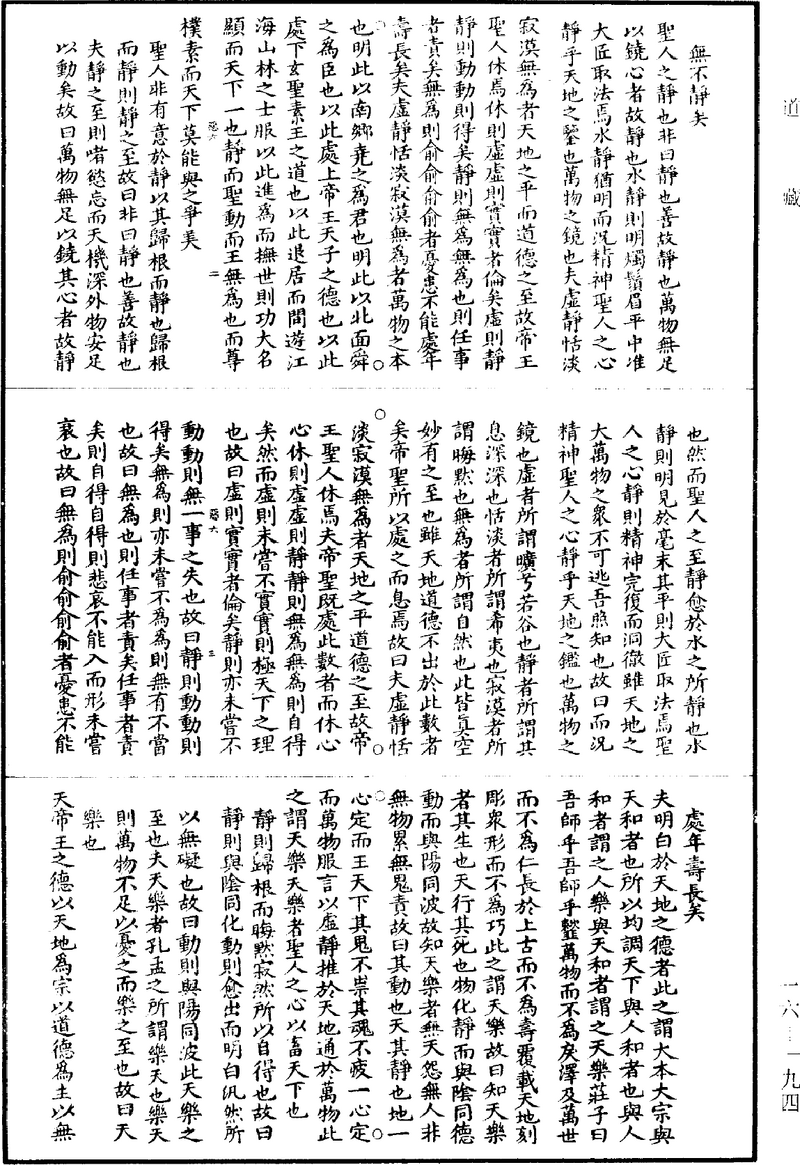 道藏
無不靜矣
聖人之靜也非曰靜也善故靜也萬物無足
以鐃心者故靜也水靜則明燭鬚眉平中准
大匠取法焉水靜猶明而況精神聖人之心
靜乎天地之鑒也萬物之鏡也夫虛靜恬淡
寂漠無為者天地之平而道德之至故帝王
聖人休焉休則虛虛則實實者倫矣虛則靜
靜則動動則得矣靜則無為無為也則任事
者責矣無為則俞俞俞俞者憂患不能處年
壽長矣夫虛靜恬淡寂漠無為者萬物之本
也明此以南鄉堯之為君也明此以北面舜
之為臣也以此處上帝王天子之德也以此
處下玄聖素王之道也以此退居而閒遊江
海山林之士服以此進為而撫世則功大名
顯而天下一也靜而聖動而王無為也而尊
樸素而天下莫能與之爭美
二
聖人非有意於靜以其歸根而靜也歸根
而靜則靜之至故曰非曰靜也善故靜也
夫靜之至則嗜慾忘而天機深外物安足
以動矣故曰萬物無足以鐃其心者故靜
也然而聖人之至靜愈於水之所靜也水
靜則明見於毫末其平則大匠取法焉聖
人之心靜則精神完復而洞徹雖天地之
大萬物之眾不可逃吾照知也故曰而況
精神聖人之心靜乎天地之鑑也萬物之
鏡也虛者所謂曠兮若谷也靜者所謂其
息深深也恬淡者所謂希夷也寂漠者所
謂晦默也無為者所謂自然也此皆真空
妙有之至也雖天地道德不出於此數者
矣帝聖所以處之而息焉故曰夫虛靜恬
淡寂漠無為者天地之平道德之至故帝
王聖人休焉夫帝聖既處此數者而休心
心休則虛虛則靜靜則無為無為則自得
矣然而虛則未嘗不實實則極天下之理
也故曰虛則實實者倫矣靜則亦未嘗不
三
動動則無一事之失也故曰靜則動動則
得矣無為則亦未嘗不為為則無有不當
也故曰無為也則任事者責矣任事者責
矣則自得自得則悲哀不能入而形未嘗
衰也故曰無為則俞俞俞俞者憂患不能
處年壽長矣
夫明白於天地之德者此之謂大本大宗與
天和者也所以均調天下與人和者也與人
和者謂之人樂與天和者謂之天樂莊子曰
吾師乎吾師乎䪠萬物而不為戾澤及萬世
而不為仁長於上古而不為壽覆載天地刻
彫眾形而不為巧此之謂天樂故曰知天樂
者其生也天行其死也物化靜而與陰同德
動而與陽同波故知天樂者無天怨無人非
無物累無鬼責故曰其動也天其靜也地一
心定而王天下其鬼不祟其魂不疲一心定
而萬物服言以虛靜推於天地通於萬物此
之謂天樂天樂者聖人之心以畜天下也
靜則歸根而晦默寂然所以自得也故曰
靜則與陰同化動則愈出而明白汎然所
以無礙也故曰動則與陽同波此天樂之
至也夫天樂者孔孟之所謂樂天也樂天
則萬物不足以憂之而樂之至也故曰天
樂也
天帝王之德以天地為宗以道德為主以無
一六—一九四